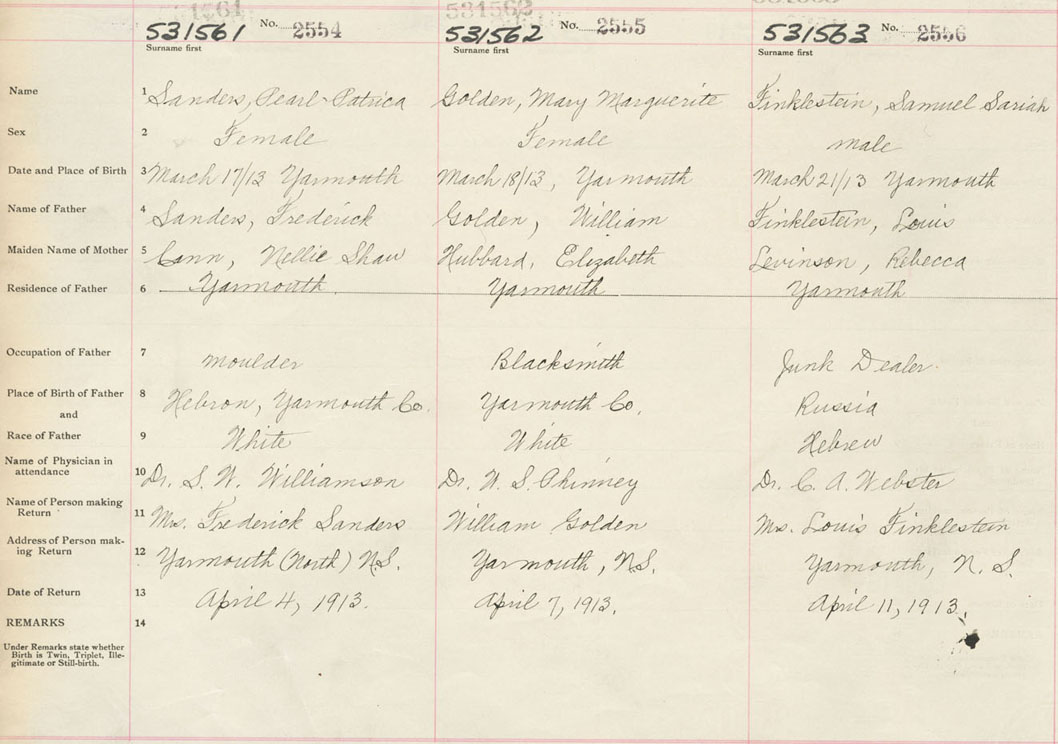 531561 No. 2554 531562 No. 2555 531563 No. 2556
Surname first Surname first Surname first
Name 1 Sanders, Pearl Patrica Golden, Mary Marguerite Finklestein, Samuel Sariah
Sex 2 Female Female male
Date and Place of Birth 3 March 17/13 Yarmouth March 18/13, Yarmouth March 21/13 Yarmouth
Name of Father 4 Sanders, Frederick Golden, William Finklestein, Louis
Maiden Name of Mother 5 Cann, Nellie Shaw Hubbard, Elizabeth Levinson, Rebecca
Residence of Father 6 Yarmouth Yarmouth Yarmouth
Occupation of Father 7 moulder Blacksmith Junk Dealer.
Place of Birth of Father 8 Hebron, Yarmouth Co. Yarmouth Co. Russia
and
Race of Father 9 White White Hebrew
Name of Physician in
attendance 10 Dr. S. W. Williamson Dr. W. S. Phinney Dr. C. A. Webster
Name of Person making
Return 11 Mrs. Frederick Sanders William Golden Mrs. Louis Finklestein
Address of Person mak-
ing Return 12 Yarmouth (North) N.S. Yarmouth, N.S. Yarmouth, N. S.
Date of Return 13 April 4, 1913. April 7, 1913. April 11, 1913.
REMARKS 14
Under Remarks state whether
Birth is Twin, Triplet, Ille-
gitimate or Still-birth.